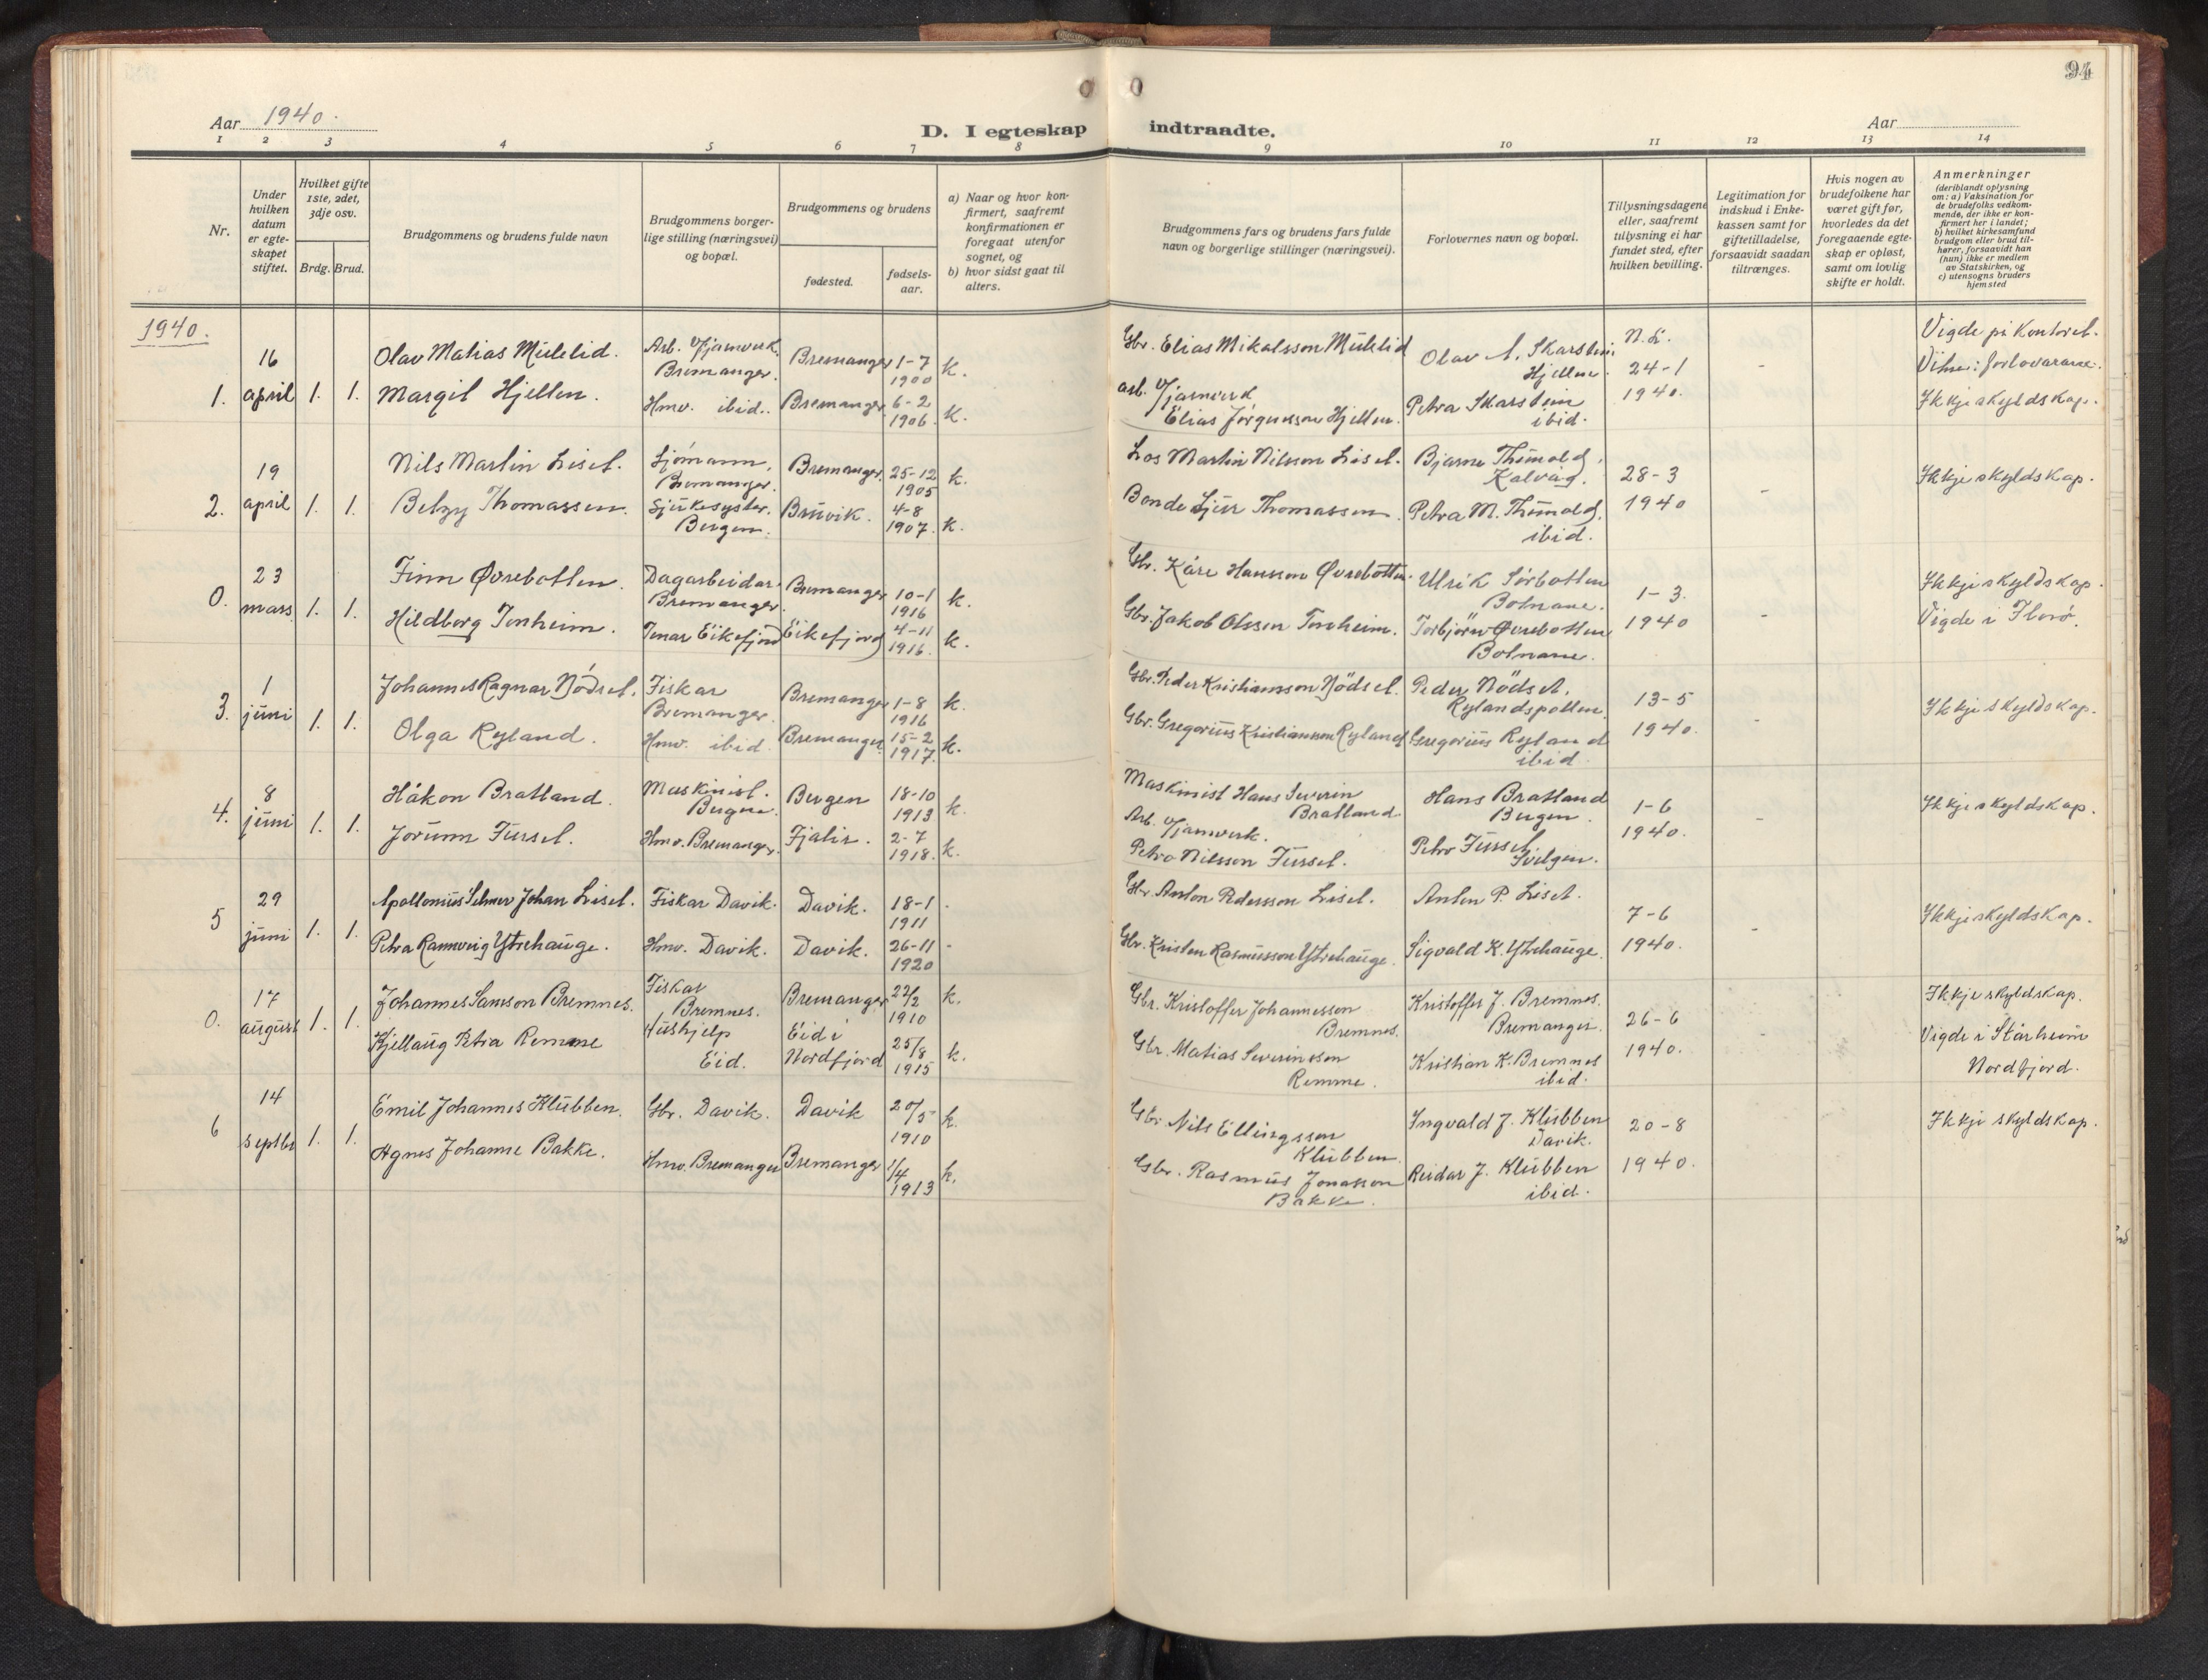 94
Aar 1940.
D. I egteskap indtraadte.
Aar
1 2 3 4 5 6 7 8 9 10 11 12 13 14
Nr.
Under hvilken datum er egte-skapet stiftet.
Hvilket gifte 1ste, 2det, 3dje osv.
Brdg. Brud.
Brudgommens og brudens fulde navn
Brudgommens borger-lige stilling (næringsvei) og bopæl.
Brudgommens og brudens
fødested.
fødsels-aar.
a) Naar og hvor kon-firmert, saafremt konfirmationen er foregaat utenfor sognet, og
b) hvor sidst gaat til alters.
Brudgommens fars og brudens fars fulde navn og borgerlige stillinger (næringsvei).
Forlovernes navn og bopæl.
Tillysningsdagene eller, saafremt tillysning ei har fundet sted, efter hvilken bevilling.
Legitimation for indskud i Enke-kassen samt for giftetilladelse, forsaavidt saadan tiltrænges.
Hvis nogen av brudefolkene har været gift før, hvorledes da det foregaaende egte-skap er opløst, samt om lovlig skifte er holdt.
Anmerkninger
(deriblandt oplysning om: a) Vaksination for de brudefolks vedkom-mende, der ikke er kon-firmert her i landet; b) hvilket kirkesamfund brudgom eller brud til-hører, forsaavidt han (hun) ikke er medlem av Statskirken, og c) utensogns bruders hjemsted
1940.
1. 16 april 1. 1.
Olav Matias Mulelid. Arb. v/jarnverk, Bremanger. Bremanger 1-7 1900 k.
Margit Hjellen. Hmv. ibid. Bremanger 6-2 1906. k.
Gbr. Elias Mikalsson Mulelid
arb. v/jarnverk Elias Jörgensson Hjellen.
Olav A. Skarstein Hjellen.
Petra Skarstein ibid.
N.L. 24-1 1940.
-
Vigde på Kontoret.
Vitne: forlovarane.
Ikkje skyldskap.
2. 19 april 1. 1.
Nils Martin Liset. Sjömann, Bremanger. Bremanger. 25-12 1905 k.
Betzy Thomassen. Sjukesyster. Bergen. Bruvik. 4-8 1907. k.
Los Martin Nilsson Liset.
Bonde Sjur Thomassen.
Bjarne Thinold, Kalvåg.
Petra M. Thinold, ibid.
28-3 1940
-
Ikkje skyldskap.
0. 23 mars 1. 1.
Finn Øvrebotten. Dagarbeidar. Bremanger. Bremanger 10-1 1916 k.
Hildborg Tonheim. Tenar Eikefjord Eikefjord 4-11 1916. k.
Gbr. Kåre Hansson Øvrebotten.
Gbr. Jakob Olsson Tonheim.
Ulrik Sörbotten Botnane.
Torbjörn Øvrebotten Botnane.
1-3. 1940
-
Ikkje skyldskap.
Vigde i Florö.
3. 1 juni 1. 1.
Johannes Ragnar Nödset. Fiskar Bremanger. Bremanger 1-8 1916 k.
Olga Ryland. Hmv. ibid. Bremanger. 15-2 1917. k.
Gbr. Peder Kristiansson Nödset.
Gbr. Gregorius Kristiansson Ryland
Peder Nödset, Rylandspollen.
Gregorius Ryland ibid.
13-5 1940.
Ikkje skyldskap.
4. 8 juni 1. 1.
Håkon Bratland. Maskinist. Bergen. Bergen 18-10 1913 k.
Jorunn Fusset. Hmv. Bremanger. Fjalir. 2-7 1918. k.
Maskinist Hans Severin Bratland
Arb. v/jarnverk. Petro Nilsson Fusset.
Hans Bratland Bergen.
Petro Fusset, Svelgen.
1-6 1940.
-
Ikkje skyldskap.
5 29 juni 1. 1.
Apollonius Selmer Johan Liset. Fiskar Davik. Davik. 18-1 1911 -
Petra Rannveig Ytrehauge. Hmv. Davik. Davik. 26-11 1920 -
Gbr. Anton Pedersson Liset.
Gbr. Kristen Rasmusson Ytrehauge.
Anton P. Liset.
Sigvald K. Ytrehauge.
7-6 1940.
-
Ikkje skyldskap.
0. 17 august 1. 1.
Johannes Samson Bremnes. Fiskar Bremnes. Bremanger 22/2 1910 k.
Kjellaug Petra Remme Hushjelp Eid. Eid i Nordfjord 25/8 1915 k.
Gbr. Kristoffer Johannesson Bremnes.
Gbr. Matias Severinsson Remme.
Kristoffer J. Bremnes. Bremanger.
Kristian K. Bremnes ibid.
26-6 1940.
-
Ikkje skyldskap.
Vigde i Stårheim Nordfjord.
6 14 septbr 1. 1.
Emil Johannes Klubben. Gbr. Davik. Davik 20/5 1910 k.
Agnes Johanne Bakke. Hmv. Bremanger Bremanger 1/4 1913 k.
Gbr. Nils Ellingsson Klubben.
Gbr. Rasmus Jonasson Bakke.
Ingvald J. Klubben Davik.
Reidar J. Klubben ibid.
20-8 1940.
Ikkje skyldskap.